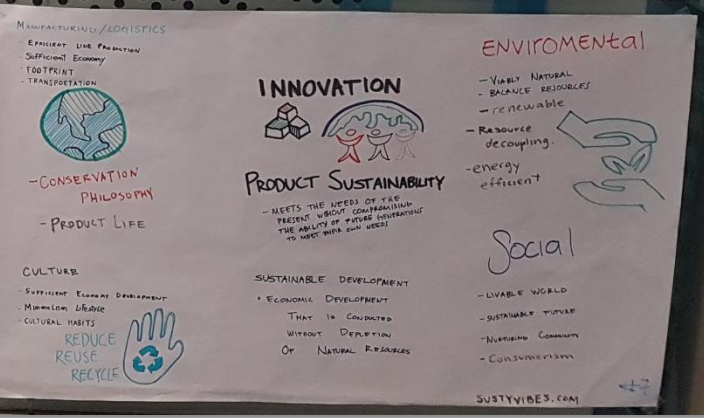 MANUFACTURING/LOGISTICS
- EFFICIENT LINE PRODUCTION
- Sufficient Economy
- FOOTPRINT
- TRANSPORTATION
- CONSERVATION
PHILOSOPHY
- PRODUCT LIFE
CULTURE
- Sufficient Economy Development
- Minimalism Lifestyle
- CULTURAL HABITS
REDUCE
REUSE
RECYCLE
INNOVATION
PRODUCT SUSTAINABILITY
- MEETS THE NEEDS OF THE
PRESENT WITHOUT COMPROMISING
THE ABILITY OF FUTURE GENERATIONS
TO MEET THEIR OWN NEEDS
SUSTAINABLE DEVELOPMENT
• ECONOMIC DEVELOPMENT
THAT IS CONDUCTED
WITHOUT DEPLETION
OF NATURAL RESOURCES
ENVIROMENtal
- VIABLY NATURAL
- BALANCE RESOURCES
- renewable
- Resource
decoupling.
- energy
efficient
Social
- LIVABLE WORLD
- SUSTAINABLE FUTURE
- NURTURING COMMUNITY
- Consumerism
SUSTYVIBES.COM